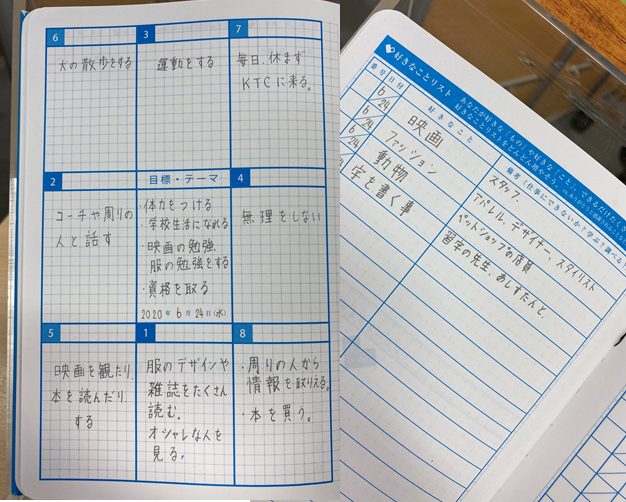 6
犬の散歩をする
3
運動をする
7
毎日、休まず
KTCに来る。
2
コーチや周りの
人と話す
目標・テーマ
・体力をつける
・学校生活になれる
・映画の勉強、
服の勉強をする
・資格を取る
2020年 6月 24日(水)
4
無理をしない
5
映画を観たり、
本を読んだり
する
1
服のデザインや
雑誌をたくさん
読む。
オシャレな人を
見る。
8
・周りの人から
情報を取り入れる。
・本を買う。
好きなことリスト
あなたが好きな「もの」や好きな「こと」、できるだけたくさん
好きなことリストをどんどん増やそう。
番号 日付 好きなこと
備考(仕事にできないか?学ぶ?調べる?
6/24 映画
スタッフ、
6/24 ファッション
アパレル、デザイナー、スタイリスト
6/24 動物
ペットショップの店員
字を書く事
習字の先生、あしすたんと、